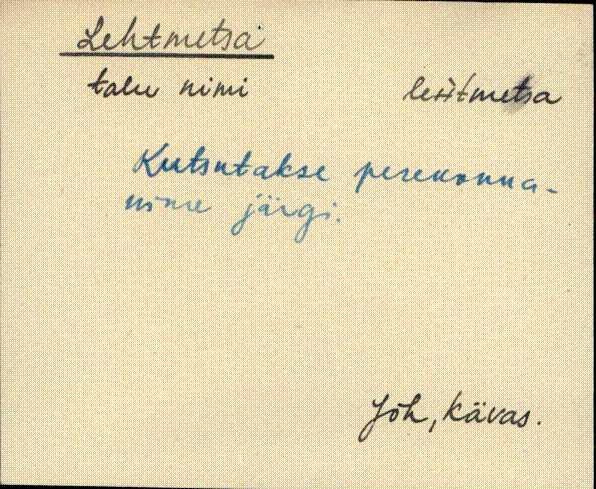 Lehtmetsa
talu nimi lehtmetsa
Kutsutakse perekonna-
nime järgi.
Jõh, Kävas.